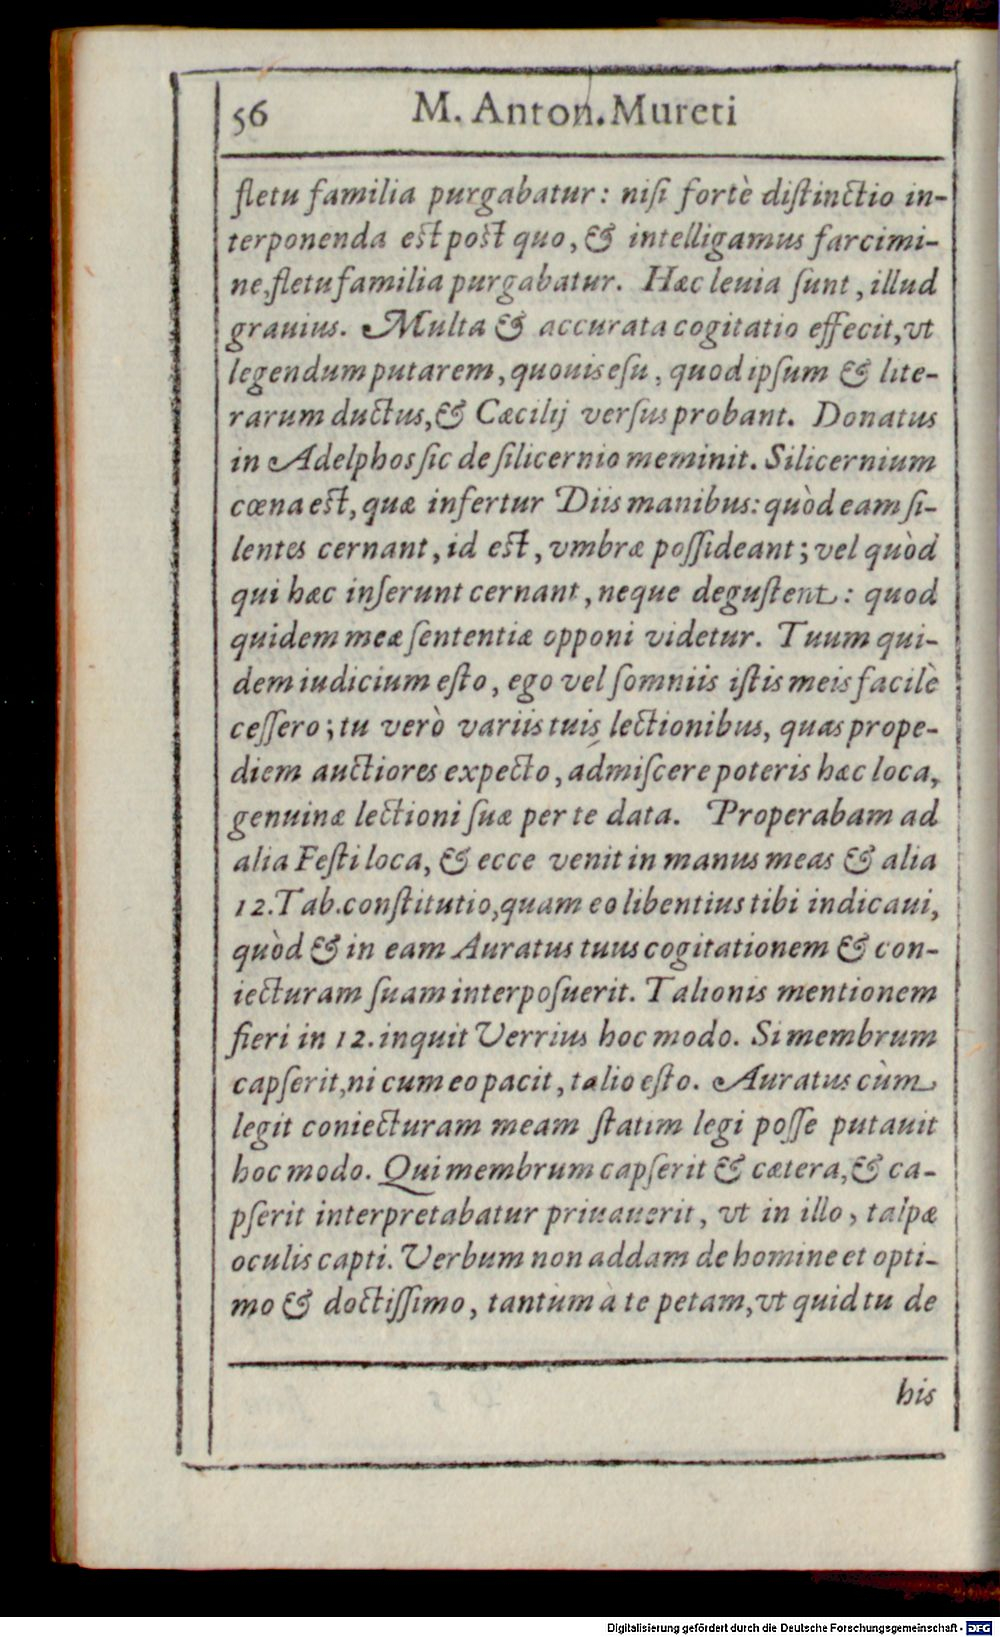 56 M. Anton. Mureti
fletu familia purgabatur: niſi fortè diſtinctio in-
terponenda eſt poſt quo, & intelligamus farcimi-
ne, fletu familia purgabatur. Hæc leuia ſunt, illud
grauius. Multa & accurata cogitatio effecit, vt
legendum putarem, quouis eſu, quod ipſum & lite-
rarum ductus, & Cæcilij verſus probant. Donatus
in Adelphos ſic de ſilicernio meminit. Silicernium
cœna eſt, quæ infertur Diis manibus: quòd eam ſi-
lentes cernant, id eſt, vmbræ poſſideant; vel quòd
qui hæc inferunt cernant, neque deguſtent: quod
quidem meæ ſententiæ opponi videtur. Tuum qui-
dem iudicium eſto, ego vel ſomniis iſtis meis facilè
ceſſero; tu verò variis tuis lectionibus, quas prope-
diem auctiores expecto, admiſcere poteris hæc loca,
genuinæ lectioni ſuæ per te data. Properabam ad
alia Feſti loca, & ecce venit in manus meas & alia
12. Tab. conſtitutio, quam eo libentius tibi indicaui,
quòd & in eam Auratus tuus cogitationem & con-
iecturam ſuam interpoſuerit. Talionis mentionem
fieri in 12. inquit Verrius hoc modo. Si membrum
capſerit, ni cum eo pacit, talio eſto. Auratus cùm
legit coniecturam meam ſtatim legi poſſe putauit
hoc modo. Qui membrum capſerit & cætera, & ca-
pſerit interpretabatur priuauerit, vt in illo, talpæ
oculis capti. Verbum non addam de homine et opti-
mo & doctiſſimo, tantùm à te petam, vt quid tu de
his
Digitalisierung gefördert durch die Deutsche Forschungsgemeinschaft - DFG